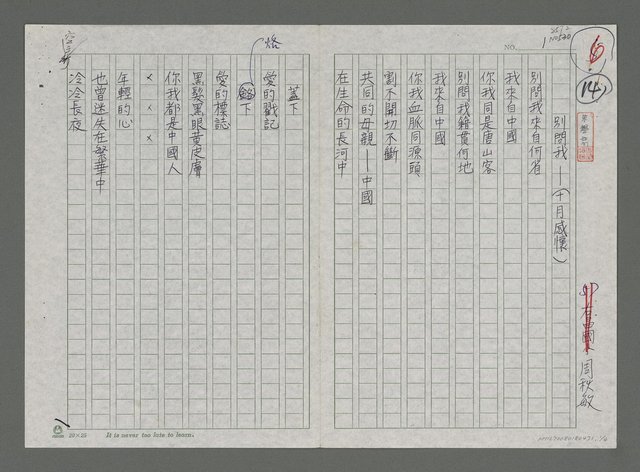 別問我——(十月感懷)
周秋敏
別問我來自何省
我來自中國
你我同是唐山客
別問我籍貫何地
我來自中國
你我血脈同源頭
割不開切不斷
共同的母親——中國
在生命的長河中
蓋下
愛的戳記
烙下
愛的標誌
黑髮黑眼黃皮膚
你我都是中國人
× × ×
年輕的心
也曾迷失在繁華中
冷冷長夜
NO. 1
14
20×25 It is never too late to learn.